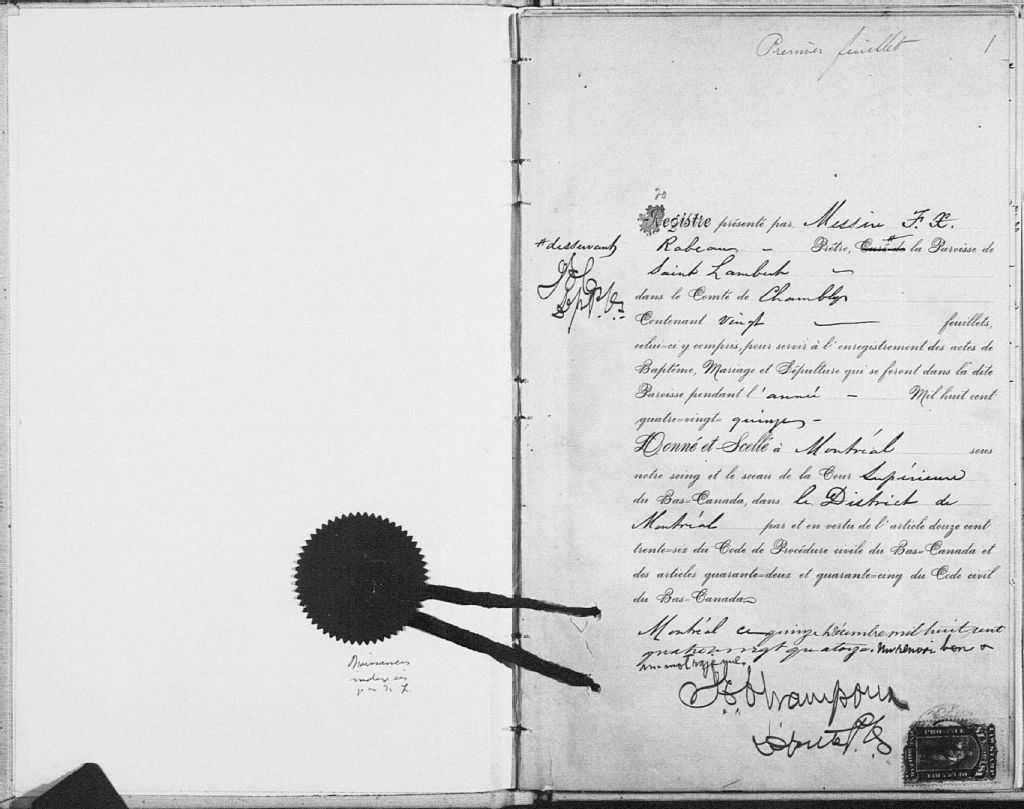 Premier feuillet 1
20
Registre présenté par Messire F. X.
# desservant
Rabeau - Prêtre, Curé de # la Paroisse de
Saint Lambert
dans le Comté de Chambly
Contenant vingt feuillets,
celui=ci y compris, pour servir à l'enregistrement des actes de
Baptême, Mariage et Sépulture qui se feront dans la dite
Paroisse pendant l'année - Mil huit cent
quatre=vingt= quinze -
Donné et Scellé à Montréal sous
notre seing et le sceau de la Cour Supérieure
du Bas=Canada, dans le District de
Montréal par et en vertu de l'article douze cent
trente=six du Code de Procédure civile du Bas=Canada et
des articles quarante=deux et quarante=cinq du Code civil
du Bas=Canada
Montréal ce quinze décembre mil huit cent
quatre vingt quatorze. Un renvoi bon &
un mot rayé nul
Champoux
Dépté P. S.
Naissances
indexées
par